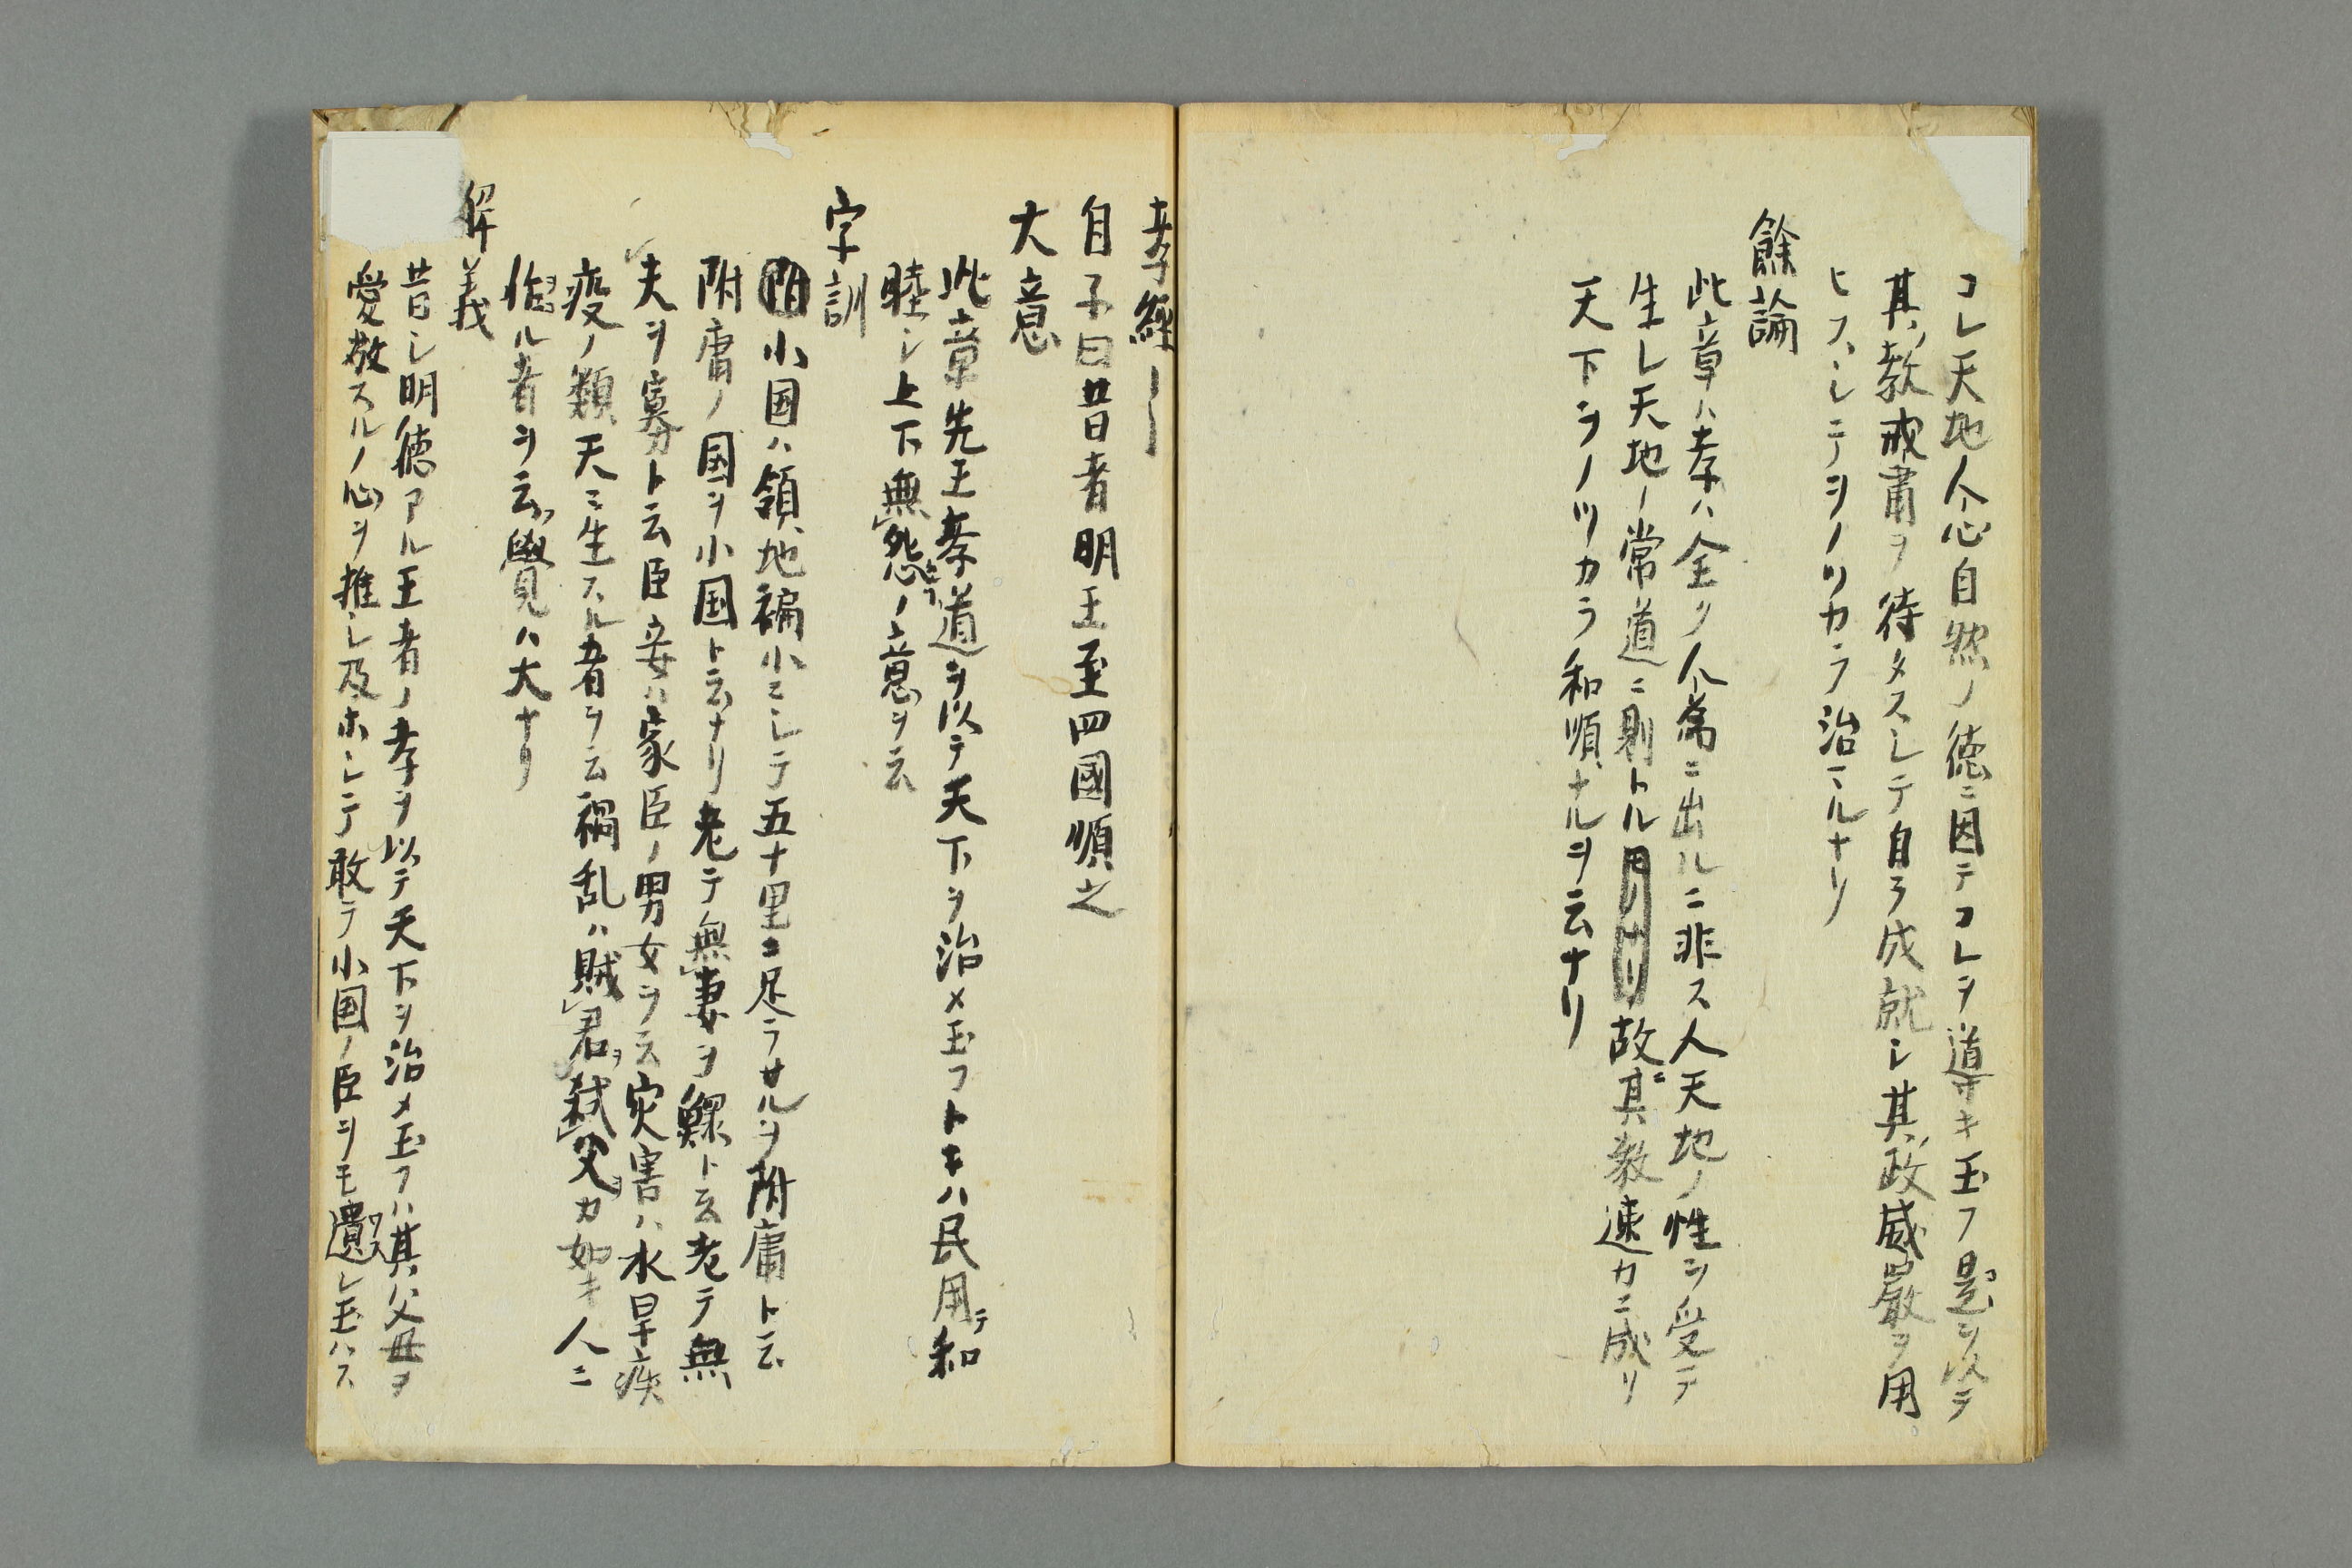 コレ天地人心自然ノ徳ニ因テコレヲ導キ玉フ是ヲ以テ
其ノ教戒肅ヲ待タスシテ自ラ成就シ其ノ政威嚴ヲ用
ヒスシテヲノツカラ治マルナリ
餘論
此章ハ孝ハ全ク人為ニ出ルニ非ス人天地ノ性ヲ受テ
生レ天地ノ常道ニ則トル故ニ其教速カニ成リ
天下ヲノツカラ和順ナルヲ云ナリ
孝經
自子曰昔者明王至四國順之
大意
此章先王孝道ヲ以テ天下ヲ治メ玉フトキハ民用テ和
睦シ上下無怨ノ意ヲ云
字訓
小国ハ領地褊小ニシテ五十里ニ足ラサルヲ附庸ト云
附庸ノ国ヲ小国ト云ナリ老テ無妻ヲ鰥ト云老テ無
夫ヲ寡ト云臣妾ハ家臣ノ男女ヲ云災害ハ水旱疾
疫ノ類天ニ生スル者ヲ云禍乱ハ賊君ヲ弑父ヲカ如キ人ニ
ル者ヲ云覺ハ大ナリ
解義
昔シ明徳アル王者ノ孝ヲ以テ天下ヲ治メ玉フハ其ノ父母ヲ
愛敬スルノ心ヲ推シ及ホシテ敢テ小国ノ臣ヲモ遺ワスレ玉ハス